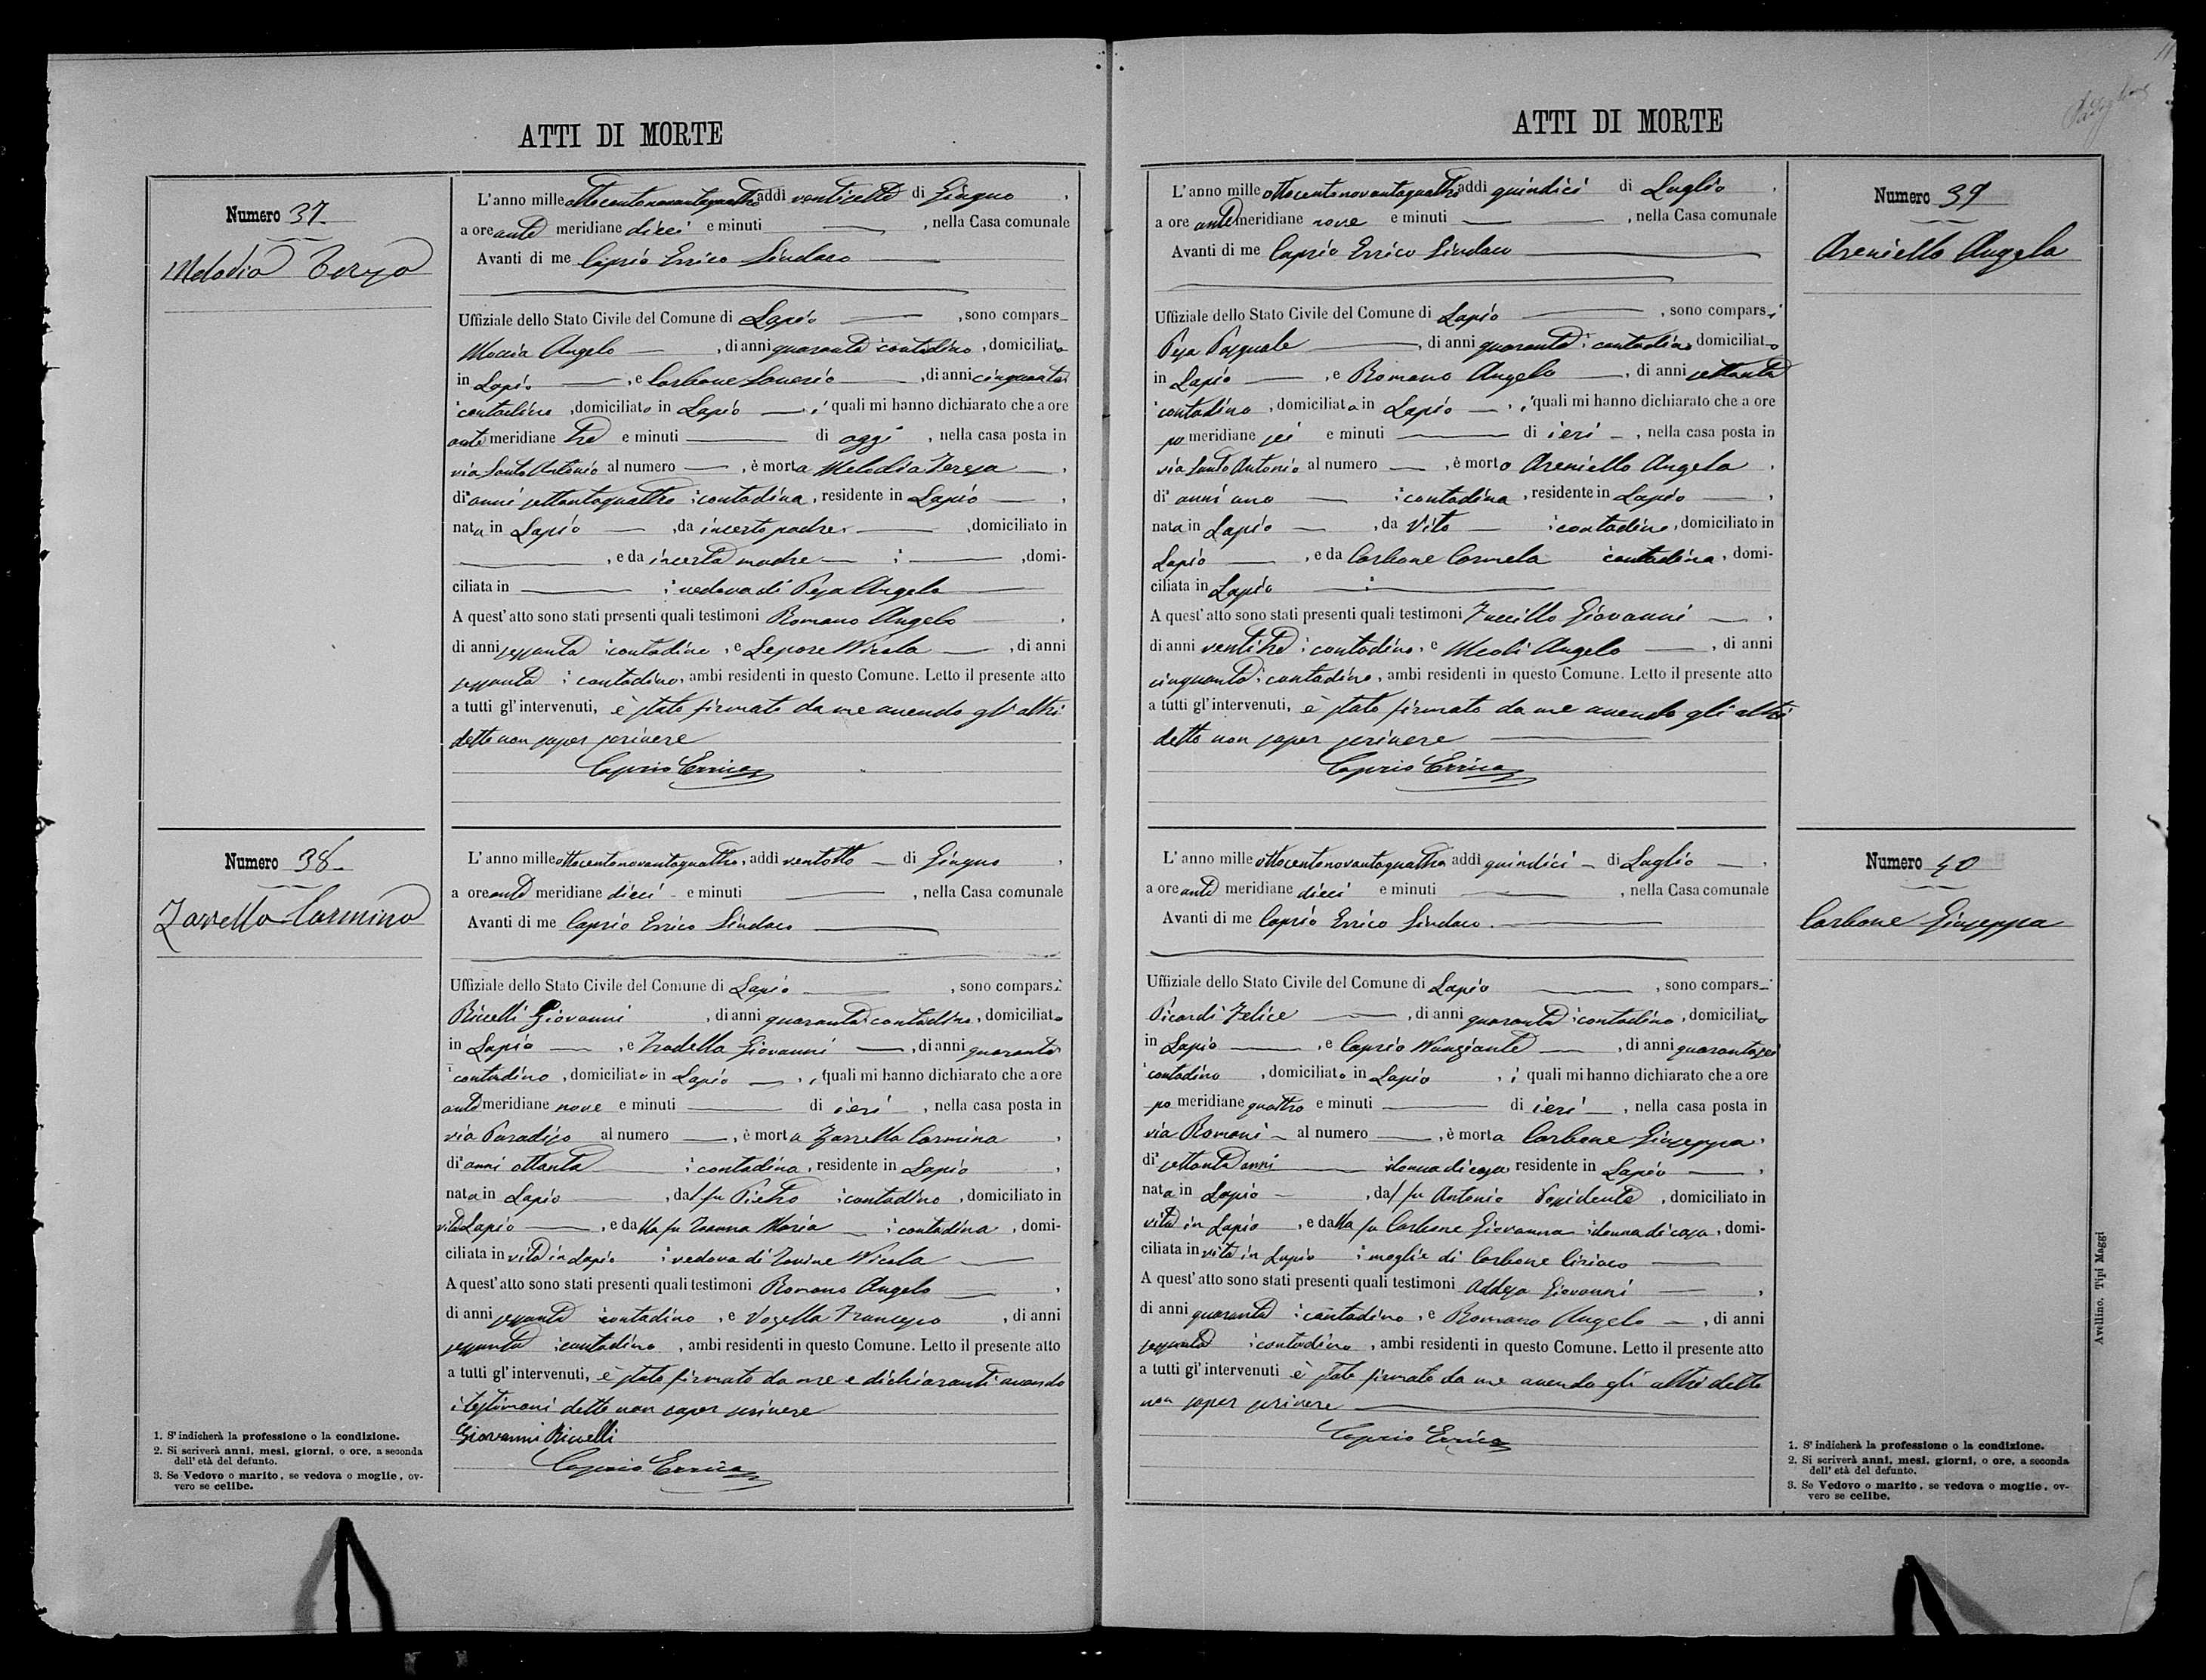 ATTI DI MORTE
Numero 37
Melodia Teresa
L'anno milleottocentonovantaquattro addì ventisette di Giugno,
a ore antemeridiane dieci e minuti, nella Casa comunale
Avanti di me Caprio Errico Sindaco
Uffiziale dello Stato Civile del Comune di Lapio, sono compars
Moccia Angelo, di anni quaranta contadino, domiciliato
in Lapio, e Carbone Saverio, di anni cinquanta
contadino, domiciliato in Lapio, i quali mi hanno dichiarato che a ore
antemeridiane tre e minuti di oggi, nella casa posta in
via Santo Antonio al numero, è morta Melodia Teresa,
di anni settantaquattro contadina, residente in Lapio,
nata in Lapio, da incerto padre, domiciliato in
, e da incerta madre, domi-
ciliata in vedova di Pesa Angelo
A quest'atto sono stati presenti quali testimoni Romano Angelo,
di anni sessanta contadino, e Lepore Nicola, di anni
sessanta contadino, ambi residenti in questo Comune. Letto il presente atto
a tutti gl'intervenuti, è stato firmato da me avendo gl'altri
detto non saper scrivere
Caprio Errico
Numero 38
Zarrella Carmina
L'anno milleottocentonovantaquattro, addì ventotto di Giugno,
a ore antemeridiane dieci e minuti, nella Casa comunale
Avanti di me Caprio Errico Sindaco
Uffiziale dello Stato Civile del Comune di Lapio, sono comparsi
Riccelli Giovanni, di anni quaranta contadino, domiciliato
in Lapio, e Giovanni, di anni quaranta
contadino, domiciliato in Lapio, i quali mi hanno dichiarato che a ore
antemeridiane nove e minuti di ieri, nella casa posta in
via Paradiso al numero, è morta Zarrella Carmina,
di anni ottanta contadina, residente in Lapio,
nata in Lapio, dal fu Pietro contadino, domiciliato in
vita Lapio, e dalla fu Maria contadina, domi-
ciliata in vita in Lapio vedova di Nicola
A quest'atto sono stati presenti quali testimoni Romano Angelo,
di anni sessanta contadino, e Vozella Francesco, di anni
sessanta contadino, ambi residenti in questo Comune. Letto il presente atto
a tutti gl'intervenuti, è stato firmato da me e dichiaranti avendo
i testimoni detto non saper scrivere
Giovanni Riccelli
Caprio Errico
1. S'indicherà la professione o la condizione.
2. Si scriverà anni, mesi, giorni, o ore, a seconda
dell'età del defunto.
3. Se Vedovo o marito, se vedova o moglie, ov-
vero se celibe.
ATTI DI MORTE
Numero 39
Areniello Angela
L'anno milleottocentonovantaquattro addì quindici di Luglio,
a ore antemeridiane nove e minuti, nella Casa comunale
Avanti di me Caprio Errico Sindaco
Uffiziale dello Stato Civile del Comune di Lapio, sono comparsi
Pesa Pasquale, di anni quaranta contadino domiciliato
in Lapio, e Romano Angelo, di anni settanta
contadino, domiciliato in Lapio, i quali mi hanno dichiarato che a ore
pomeridiane sei e minuti di ieri, nella casa posta in
via Santo Antonio al numero, è morta Areniello Angela,
di anni uno contadina, residente in Lapio,
nata in Lapio, da Vito contadino, domiciliato in
Lapio, e da Carbone Carmela contadina, domi-
ciliata in Lapio
A quest'atto sono stati presenti quali testimoni Giovanni,
di anni ventitre contadino, e Meoli Angelo, di anni
cinquanta contadino, ambi residenti in questo Comune. Letto il presente atto
a tutti gl'intervenuti, è stato firmato da me avendo gli altri
detto non saper scrivere
Caprio Errico
Numero 40
Carbone Giuseppa
L'anno milleottocentonovantaquattro addì quindici di Luglio,
a ore antemeridiane dieci e minuti, nella Casa comunale
Avanti di me Caprio Errico Sindaco
Uffiziale dello Stato Civile del Comune di Lapio, sono comparsi
Picardi Felice, di anni quaranta contadino, domiciliato
in Lapio, e Caprio Nunziante, di anni quarantasei
contadino, domiciliato in Lapio, i quali mi hanno dichiarato che a ore
pomeridiane quattro e minuti di ieri, nella casa posta in
via Romani al numero, è morta Carbone Giuseppa,
di settanta anni donna di casa residente in Lapio,
nata in Lapio, dal fu Antonio Possidente, domiciliato in
vita in Lapio, e dalla fu Carbone Giovanna donna di casa, domi-
ciliata in vita in Lapio moglie di Carbone Ciriaco
A quest'atto sono stati presenti quali testimoni Addesa Giovanni,
di anni quaranta contadino, e Romano Angelo, di anni
sessanta contadino, ambi residenti in questo Comune. Letto il presente atto
a tutti gl'intervenuti è stato firmato da me avendo gli altri detto
non saper scrivere
Caprio Errico
1. S'indicherà la professione o la condizione.
2. Si scriverà anni, mesi, giorni, o ore, a seconda
dell'età del defunto.
3. Se Vedovo o marito, se vedova o moglie, ov-
vero se celibe.
Avellino, Tipi Maggi